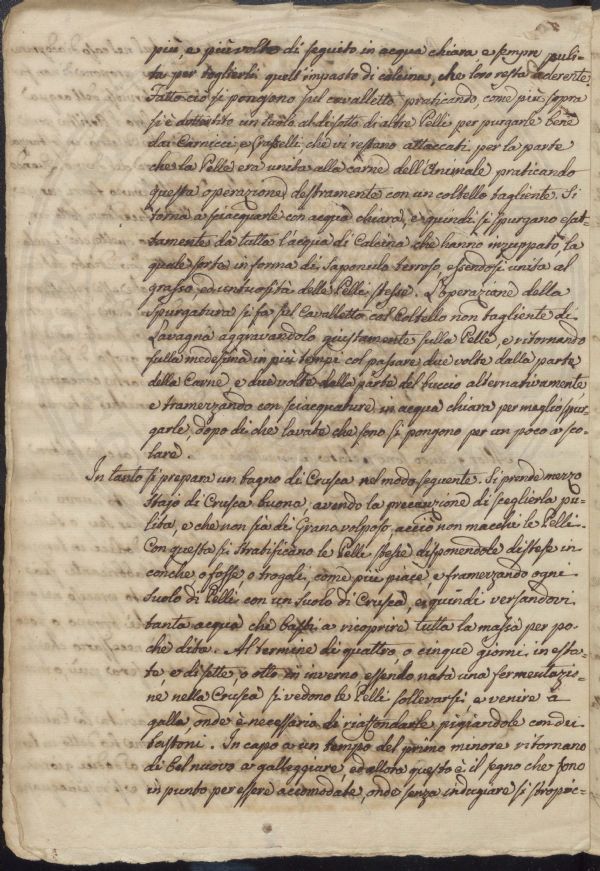 più, e più volte di seguito in acqua chiara e sempre puli-
ta per toglierli quell'impasto di calcina, che loro resta aderente.
Fatto ciò si pongono sul cavalletto, praticando, come più sopra
si è detto un suolo al disotto di altre Pelli per purgarle bene
dai Carnicci, e Grasselli che vi restano attaccati per la parte
che la Pelle era unita alla carne dell'Animale praticando
questa operazione destramente con un coltello tagliente. Si
torna a sciacquarle con acqua chiara, e quindi si spurgano esat-
tamente da tutta l'acqua di Calcina che hanno inzuppato, la
quale sorte in forma di saponulo terroso, essendosi unita al
grasso ed untuosità delle Pelli stesse. L'operazione della
Spurgatura si fa sul Cavalletto col Coltello non tagliente di
Lavagna aggravandolo giustamente sulla Pelle, e ritornando
sulla medesima in più tempi col passare due volte dalla parte
della Carne, e due volte dalla parte del buccio alternativamente
e tramezzando con sciacquature in acqua chiara per meglio spur-
garle, dopo di che lavate che sono si pongono per un poco a sco-
lare.
In tanto si prepara un bagno di Crusca nel modo seguente. Si prende mezzo
Stajo di Crusca buona, avendo la precauzione di sceglierla pu-
lita, e che non sia di Grano volposo, acciò non macchi le Pelli.
Con questa si stratificano le Pelli stesse disponendole distese in
conche o fosse o trogoli, come più piace, e framezzando ogni
suolo di Pelli con un suolo di Crusca, e quindi versandovi
tanta acqua che basti a ricoprire tutta la massa per po-
che dita. Al termine di quattro, o cinque giorni in esta-
te, e di sette, o otto in inverno essendo nata una fermentazio-
ne nella Crusca si vedono le Pelli sollevarsi e venire a
galla, onde è necessario di riaffondarle pigiandole con dei
bastoni. In capo a un tempo del primo minore ritornano
di bel nuovo a galleggiare, ed allora questo è il segno che sono
in punto per essere accomodate, onde senza indugiare si stropic-